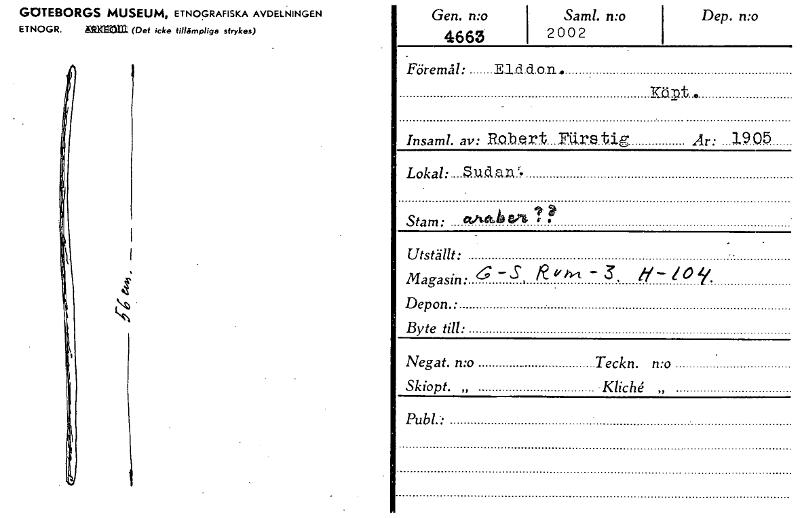 GÖTEBORGS MUSEUM, ETNOGRAFISKA AVDELNINGEN
ETNOGR. ARKEOL. (Det icke tillämpliga strykes)
56 cm.
Gen. n:o Saml. n:o Dep. n:o
4663 2002
Föremål: Elddon.
Köpt.
Insaml. av: Robert Fürstig År: 1905
Lokal: Sudan.
Stam: araber??
Utställt:
Magasin: G-S, Rum-3. H-104.
Depon.:
Byte till:
Negat. n:o Teckn. n:o
Skiopt. „ Kliché „
Publ.: